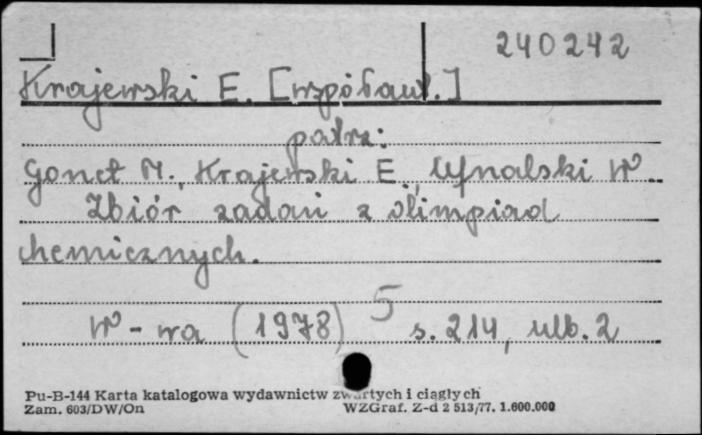 240242
Krajewski E. [współaut.]
patrz:
Gonet M., Krajewski E., Ufnalski W.
Zbiór zadań z olimpiad
chemicznych.
W-wa (1978) 5 s. 214, ulb. 2
Pu-B-144 Karta katalogowa wydawnictw zwartych i ciągłych
Zam. 603/DW/On WZGraf. Z-d 2 513/77. 1.600.000